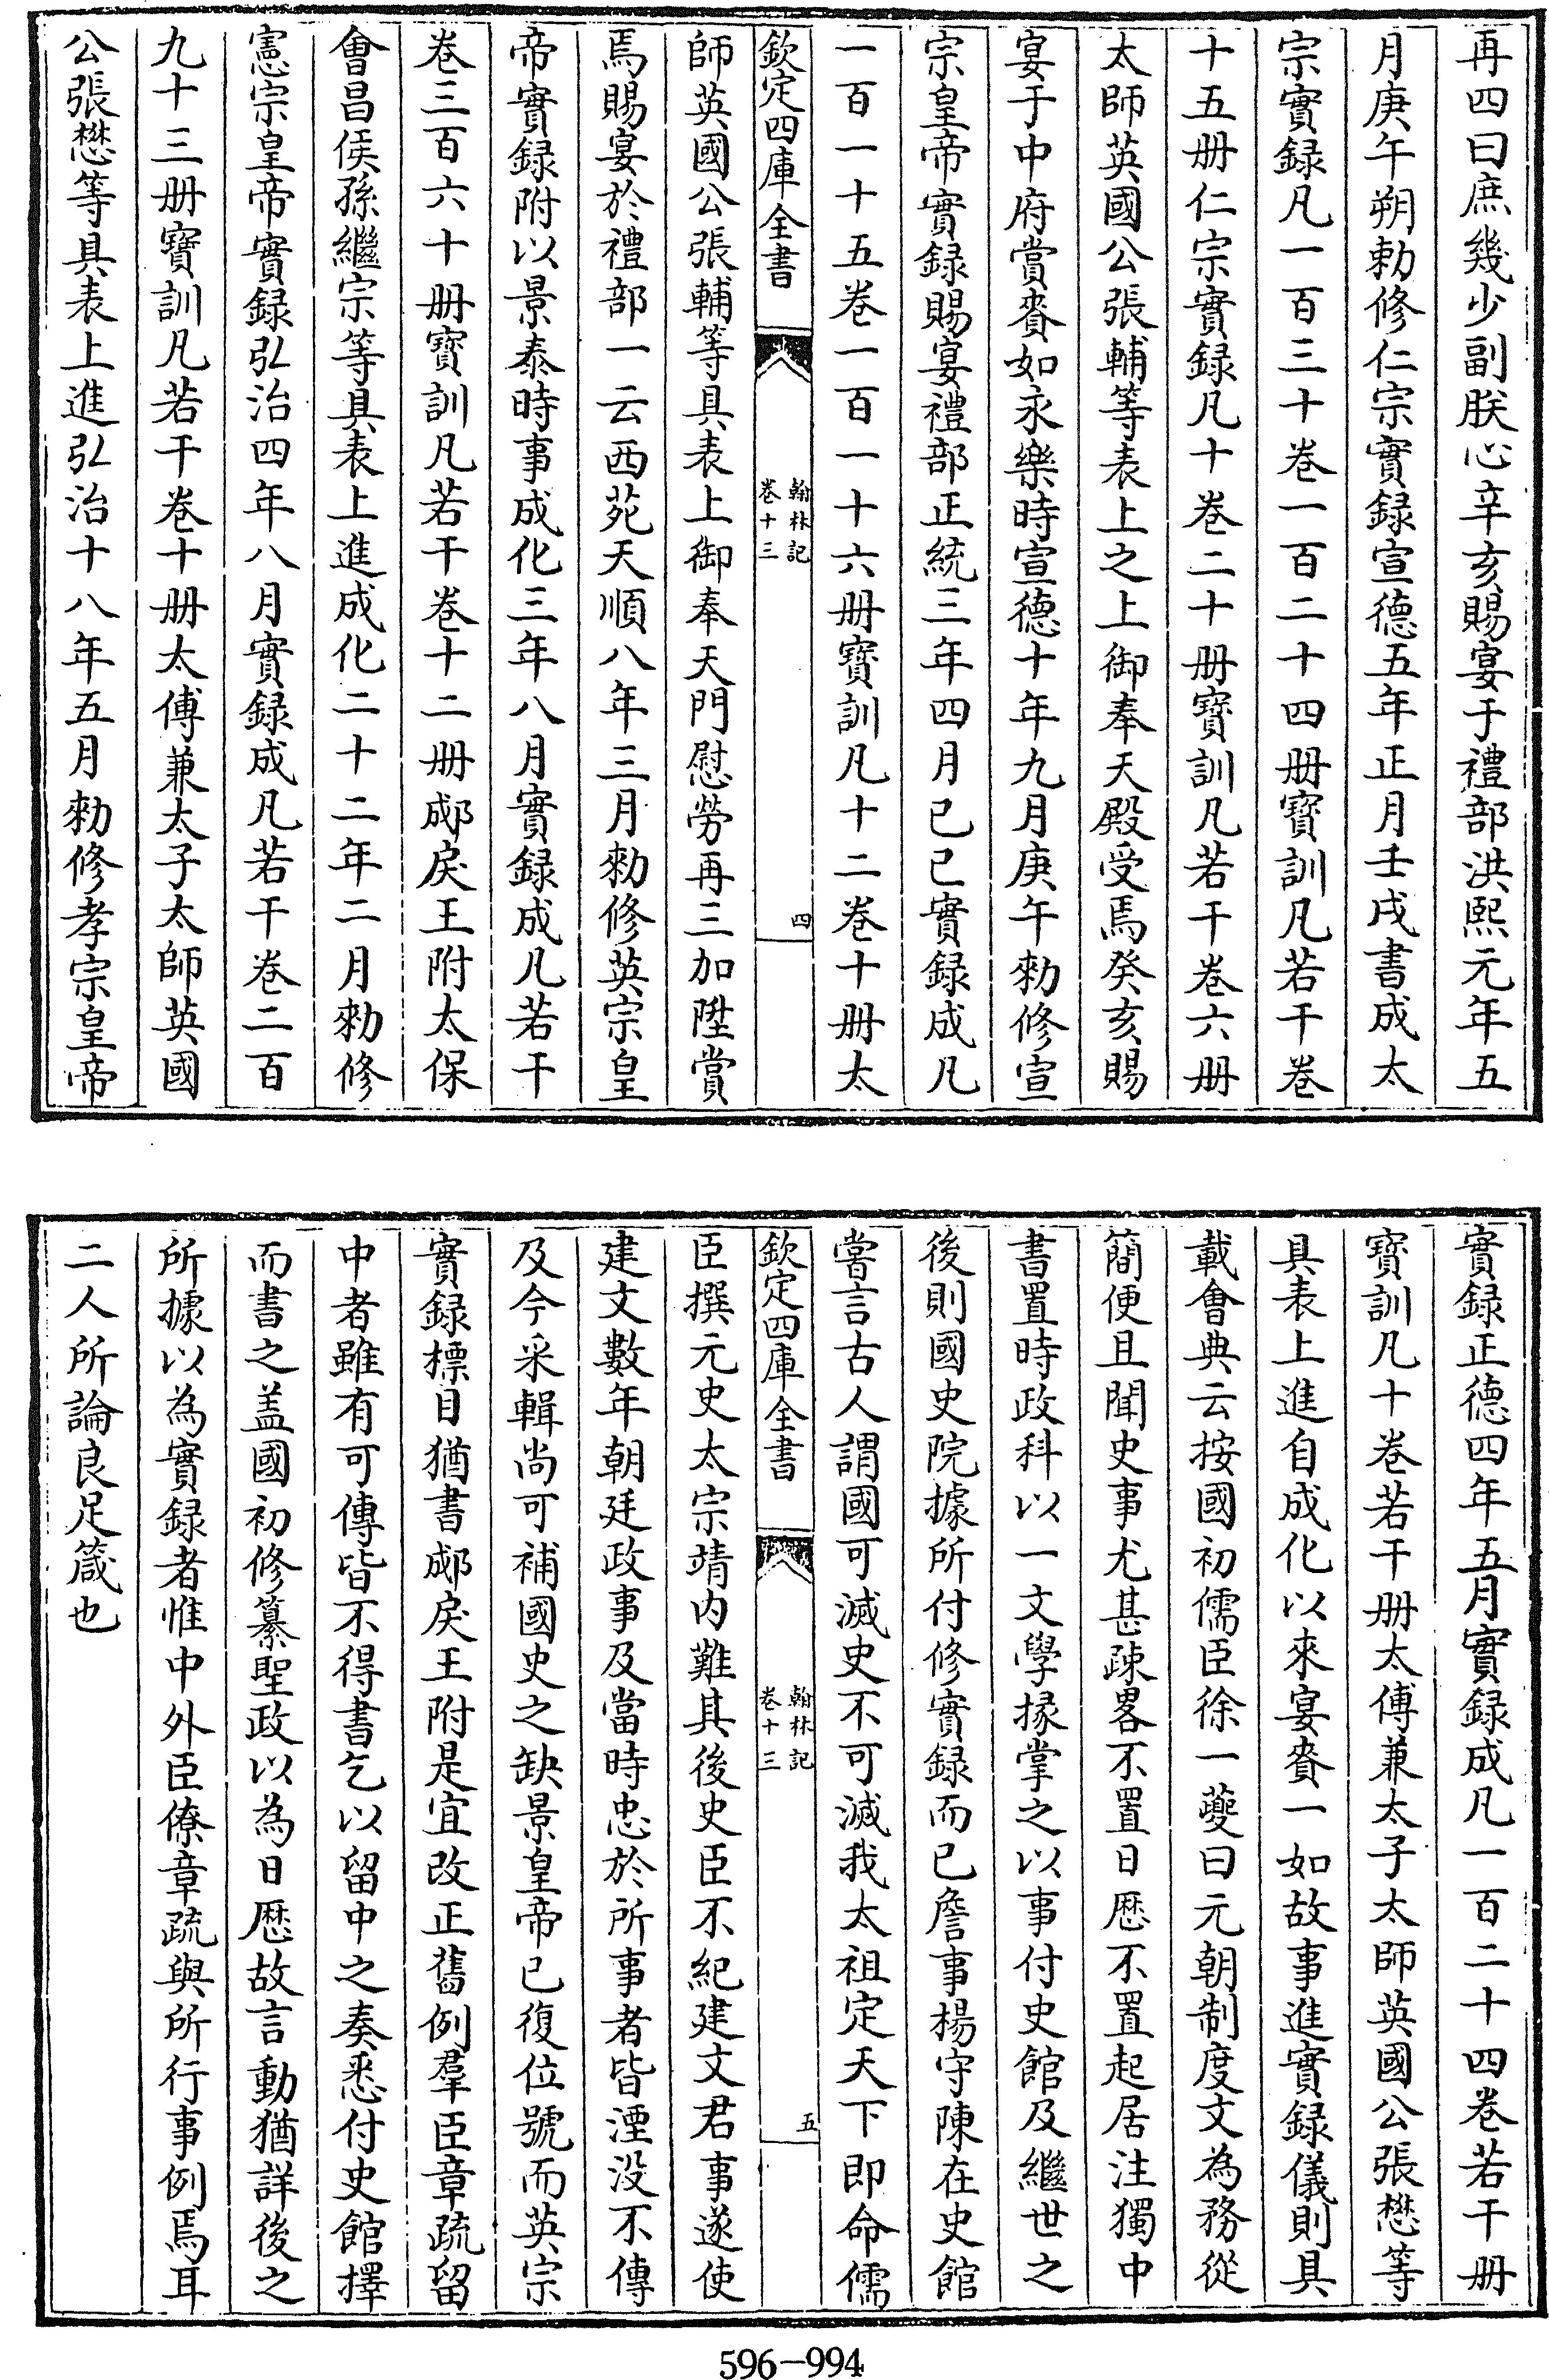 再四曰庶幾少副朕心辛亥賜宴于禮部洪熙元年五
月庚午朔勅修仁宗實録宣德五年正月壬戌書成太
宗實録凡一百三十卷一百二十四册寶訓凡若干卷
十五册仁宗實録凡十卷二十册寶訓凡若干卷六册
太師英國公張輔等表上之上御奉天殿受焉癸亥賜
宴于中府賞賚如永樂時宣德十年九月庚午勅修宣
宗皇帝實録賜宴禮部正統三年四月已已實録成凡
一百一十五卷一百一十六册寶訓凡十二卷十册太
欽定四庫全書
翰林記
卷十三
四
師英國公張輔等具表上御奉天門慰勞再三加陞賞
焉賜宴於禮部一云西苑天順八年三月勅修英宗皇
帝實録附以景泰時事成化三年八月實録成凡若干
卷三百六十册寶訓凡若干卷十二册郕戾王附太保
會昌侯孫繼宗等具表上進成化二十二年二月勅修
憲宗皇帝實録弘治四年八月實録成凡若干卷二百
九十三册寶訓凡若干卷十册太傅兼太子太師英國
公張懋等具表上進弘治十八年五月勅修孝宗皇帝
實録正德四年五月實録成凡一百二十四卷若干册
寶訓凡十卷若干册太傅兼太子太師英國公張懋等
具表上進自成化以來宴賚一如故事進實録儀則具
載會典云按國初儒臣徐一夔曰元朝制度文為務從
簡便且聞史事尤甚疎畧不置日厯不置起居注獨中
書置時政科以一文學掾掌之以事付史館及繼世之
後則國史院據所付修實録而已詹事楊守陳在史館
嘗言古人謂國可滅史不可滅我太祖定天下即命儒
欽定四庫全書
翰林記
卷十三
五
臣撰元史太宗靖内難其後史臣不紀建文君事遂使
建文數年朝廷政事及當時忠於所事者皆湮没不傳
及今采輯尚可補國史之缺景皇帝已復位號而英宗
實録標目猶書郕戾王附是宜改正舊例羣臣章疏留
中者雖有可傳皆不得書乞以留中之奏悉付史館擇
而書之盖國初修纂聖政以為日厯故言動猶詳後之
所據以為實録者惟中外臣僚章疏與所行事例焉耳
二人所論良足箴也
596-994